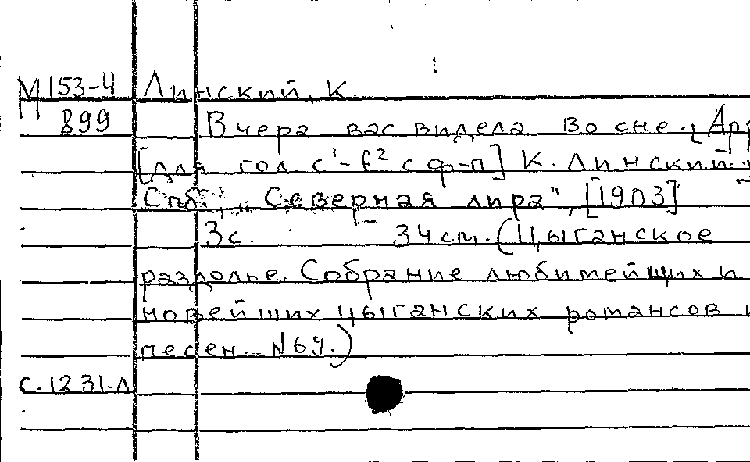 М 153-4 Линский, К.
899 Вчера вас видела во сне. [Арр
[для гол. с¹-f² с ф-п] К. Линский.
Спб., "Северная лира", [1903]
3с 34см. (Цыганское
раздолье. Собрание любимейших и
новейших цыганских романсов и
песен. N64.)
с.1231.л